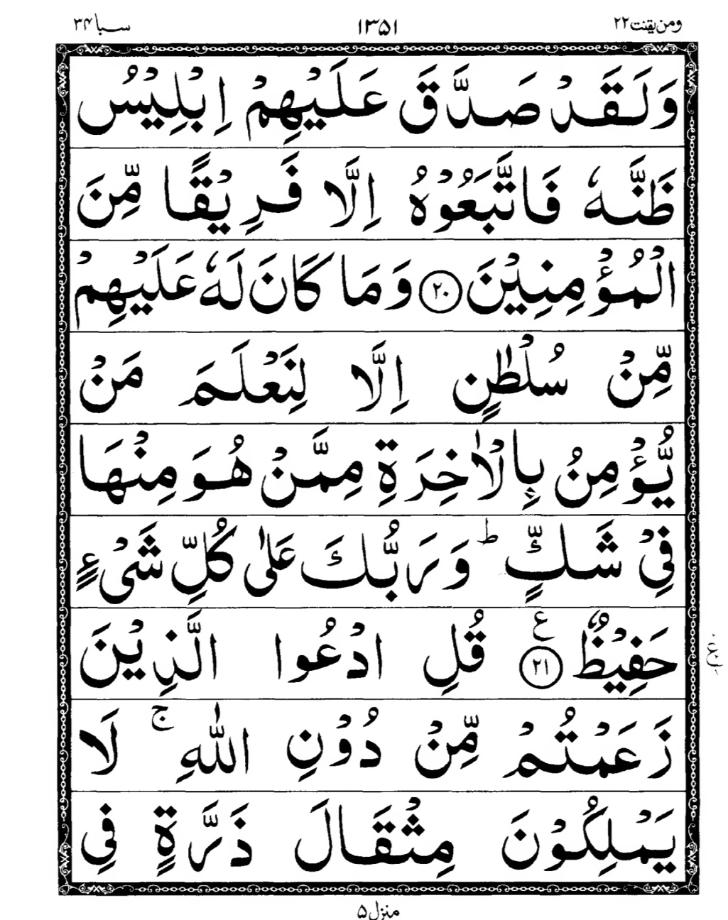 ومن یقنت ۲۲ ۱۳۵۱ سبا ۳۴
وَلَقَدْ صَدَّقَ عَلَيْهِمْ اِبْلِيْسُ
ظَنَّهٗ فَاتَّبَعُوْهُ اِلَّا فَرِيْقًا مِّنَ
الْمُؤْمِنِيْنَ ﴿۲۰﴾ وَمَا كَانَ لَهٗ عَلَيْهِمْ
مِّنْ سُلْطٰنٍ اِلَّا لِنَعْلَمَ مَنْ
يُّؤْمِنُ بِالْاٰخِرَةِ مِمَّنْ هُوَ مِنْهَا
فِيْ شَكٍّ ؕ وَرَبُّكَ عَلٰى كُلِّ شَيْءٍ
حَفِيْظٌ ﴿۲۱﴾ ع قُلِ ادْعُوا الَّذِيْنَ
زَعَمْتُمْ مِّنْ دُوْنِ اللّٰهِ ۚ لَا
يَمْلِكُوْنَ مِثْقَالَ ذَرَّةٍ فِي
منزل ۵